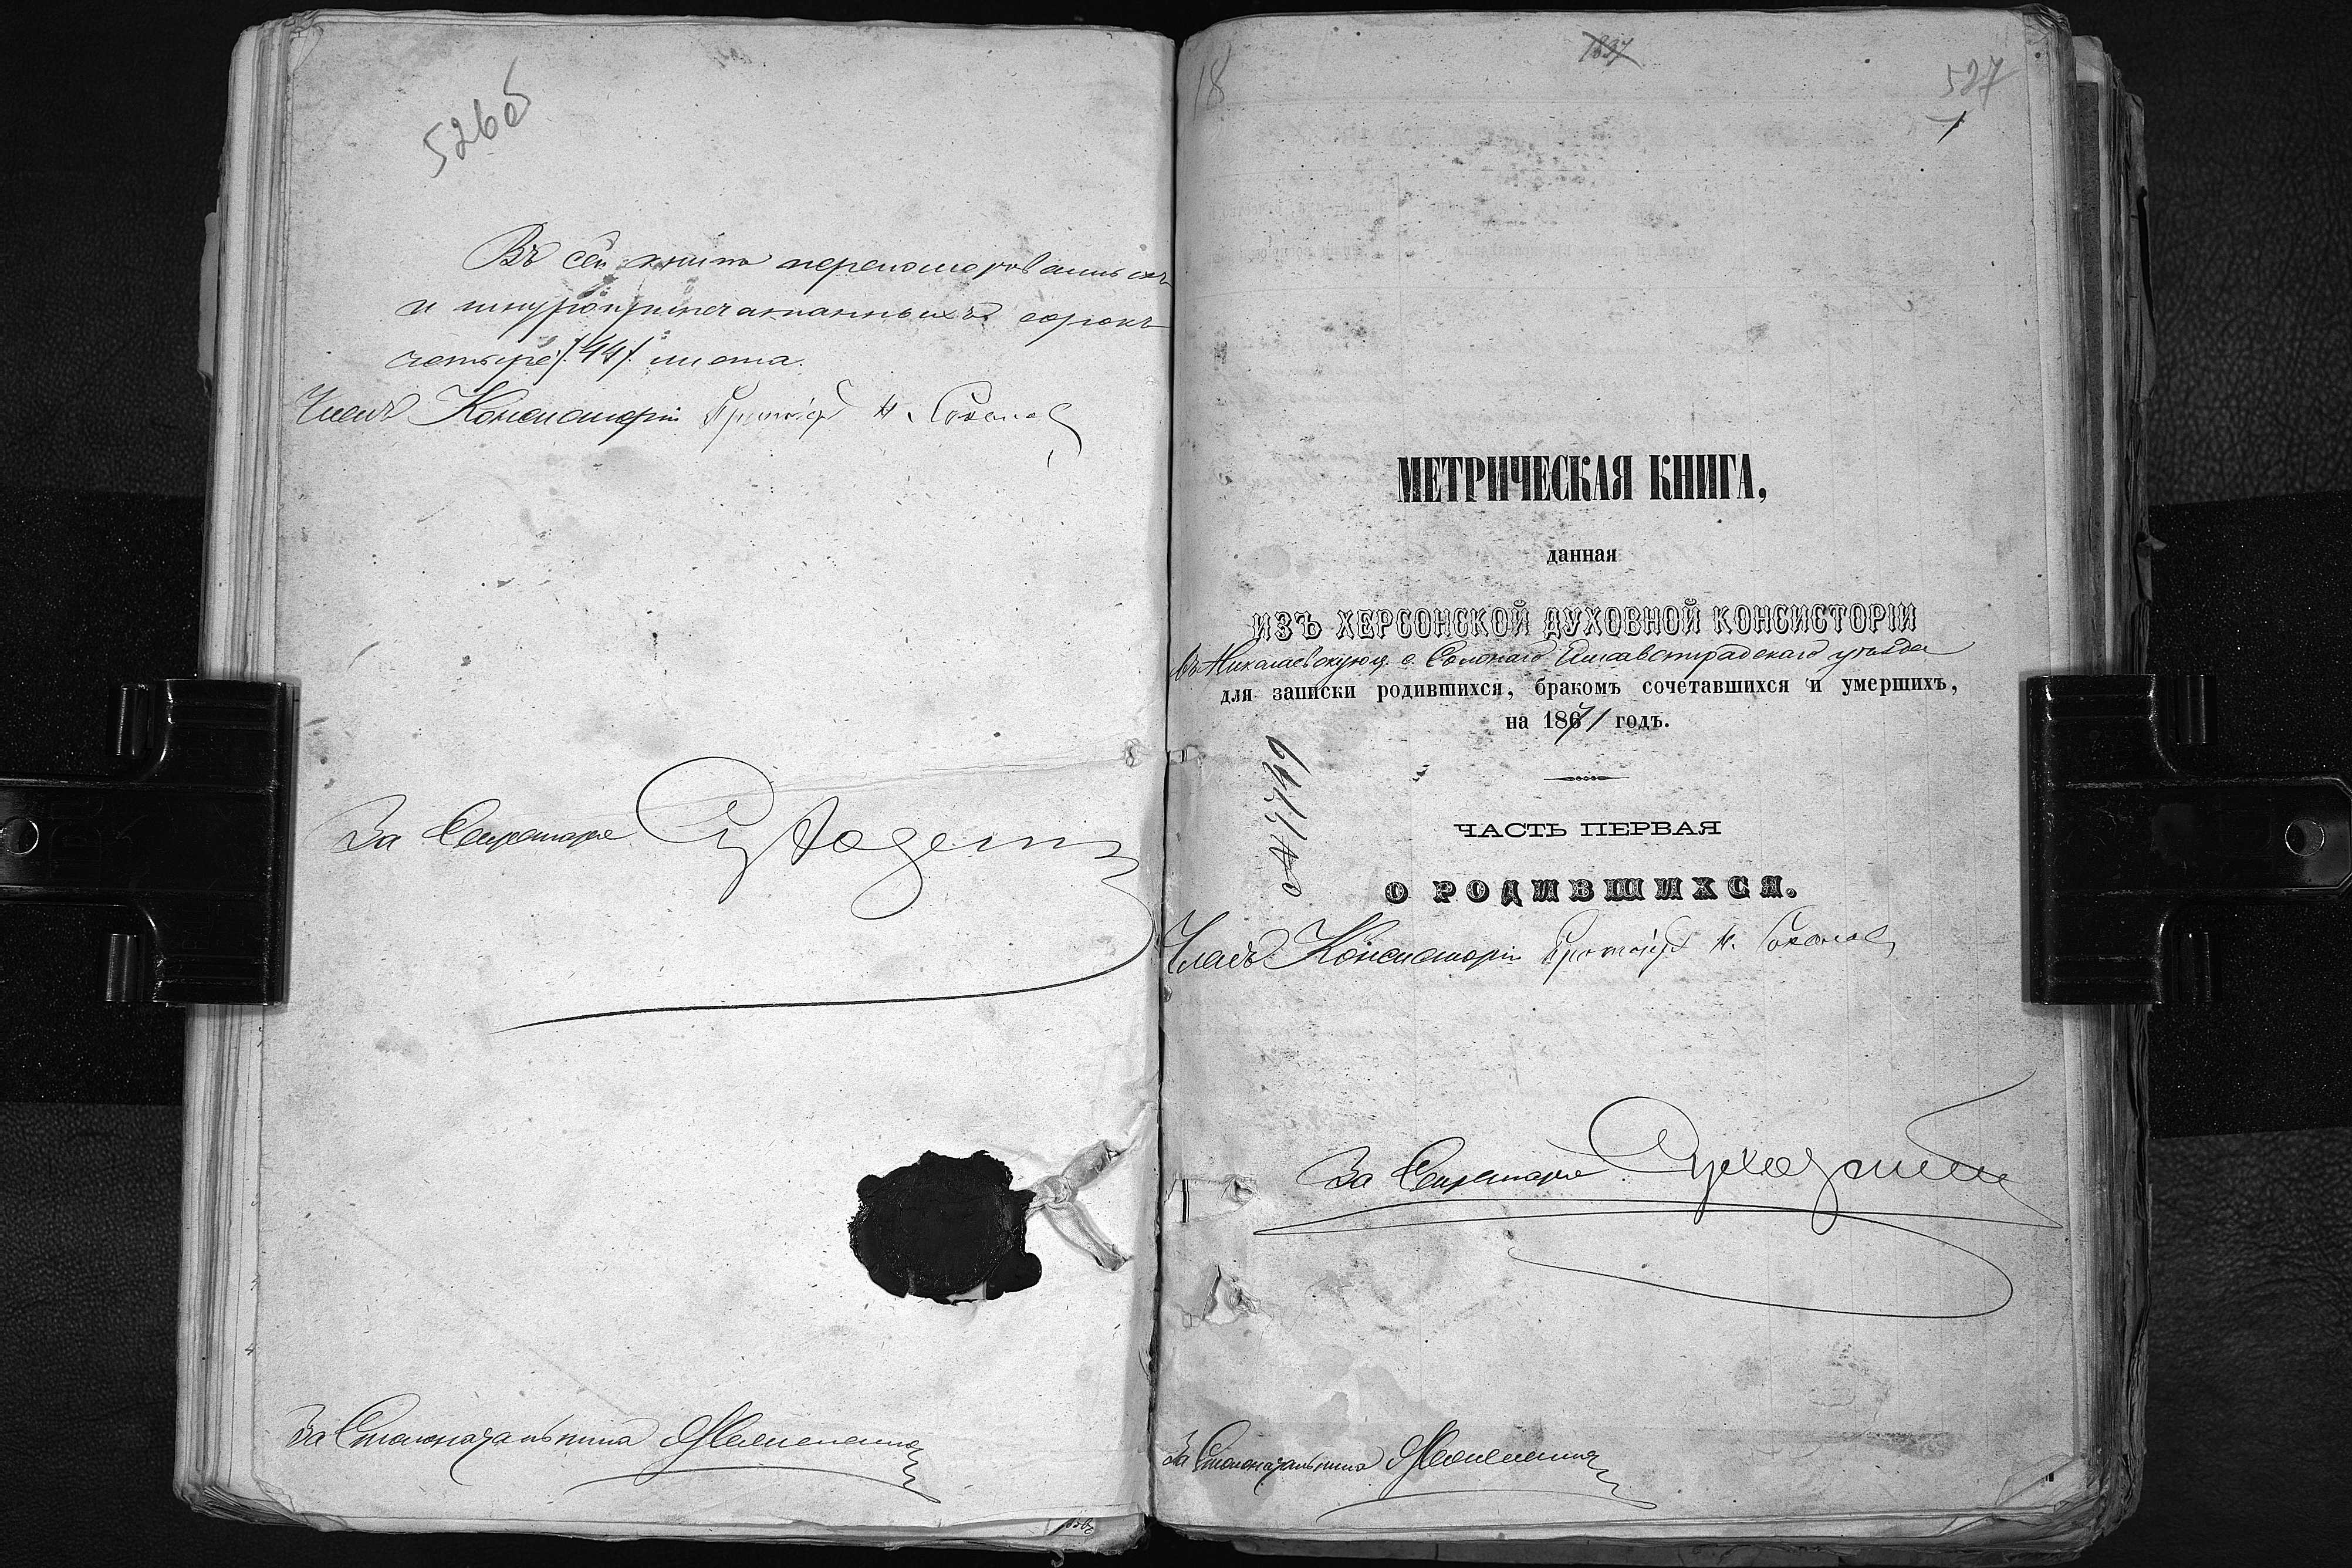 526об
Въ сей книге перенумерованныхъ
и шнуроприпечатанныхъ сорокъ
четыре /44/ листа.
Членъ Консисторіи Протоіер Н. Соколов
За Секретаря
За Столоначальника
18
1837
527
1
МЕТРИЧЕСКАЯ КНИГА,
данная
ИЗЪ ХЕРСОНСКОЙ ДУХОВНОЙ КОНСИСТОРІИ
въ Николаевскую ц. с. Солонаго Елисаветградскаго уѣзда
для записки родившихся, бракомъ сочетавшихся и умершихъ,
на 1871 годъ.
ЧАСТЬ ПЕРВАЯ
О РОДИВШИХСЯ.
Членъ Консисторіи Протоіер Н. Соколов
За Секретаря
За Столоначальника